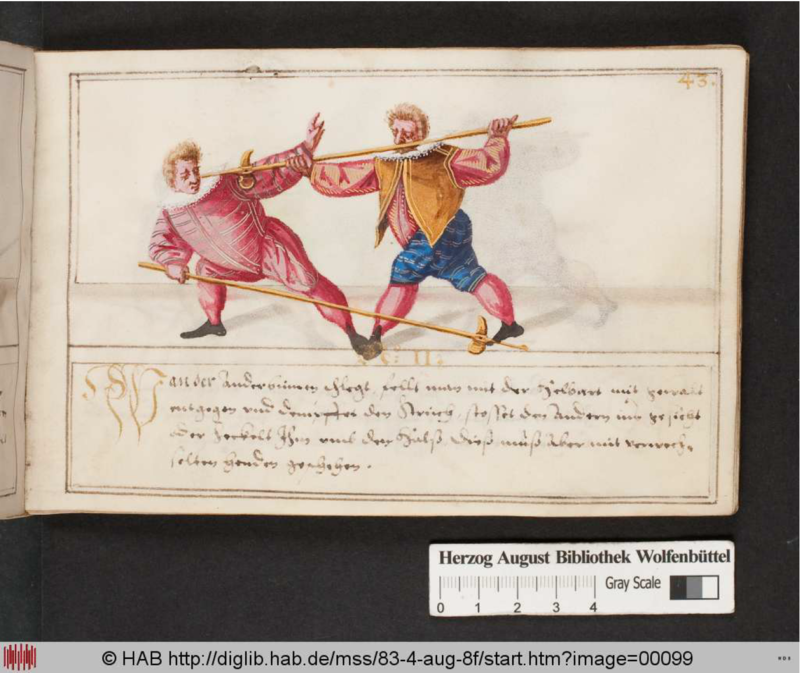 43.
Wan der Ander ... schlegt, fellt man mit der Helbart mit gewalt
entgegen vnd dempffet den streich, stosset den Andern ins gesicht
oder heckelt Ihm vmb den Halß, dieß muß Aber mit verwech,
selten henden geschehen.
Herzog August Bibliothek Wolfenbüttel
0 1 2 3 4 Gray Scale
© HAB http://diglib.hab.de/mss/83-4-aug-8f/start.htm?image=00099